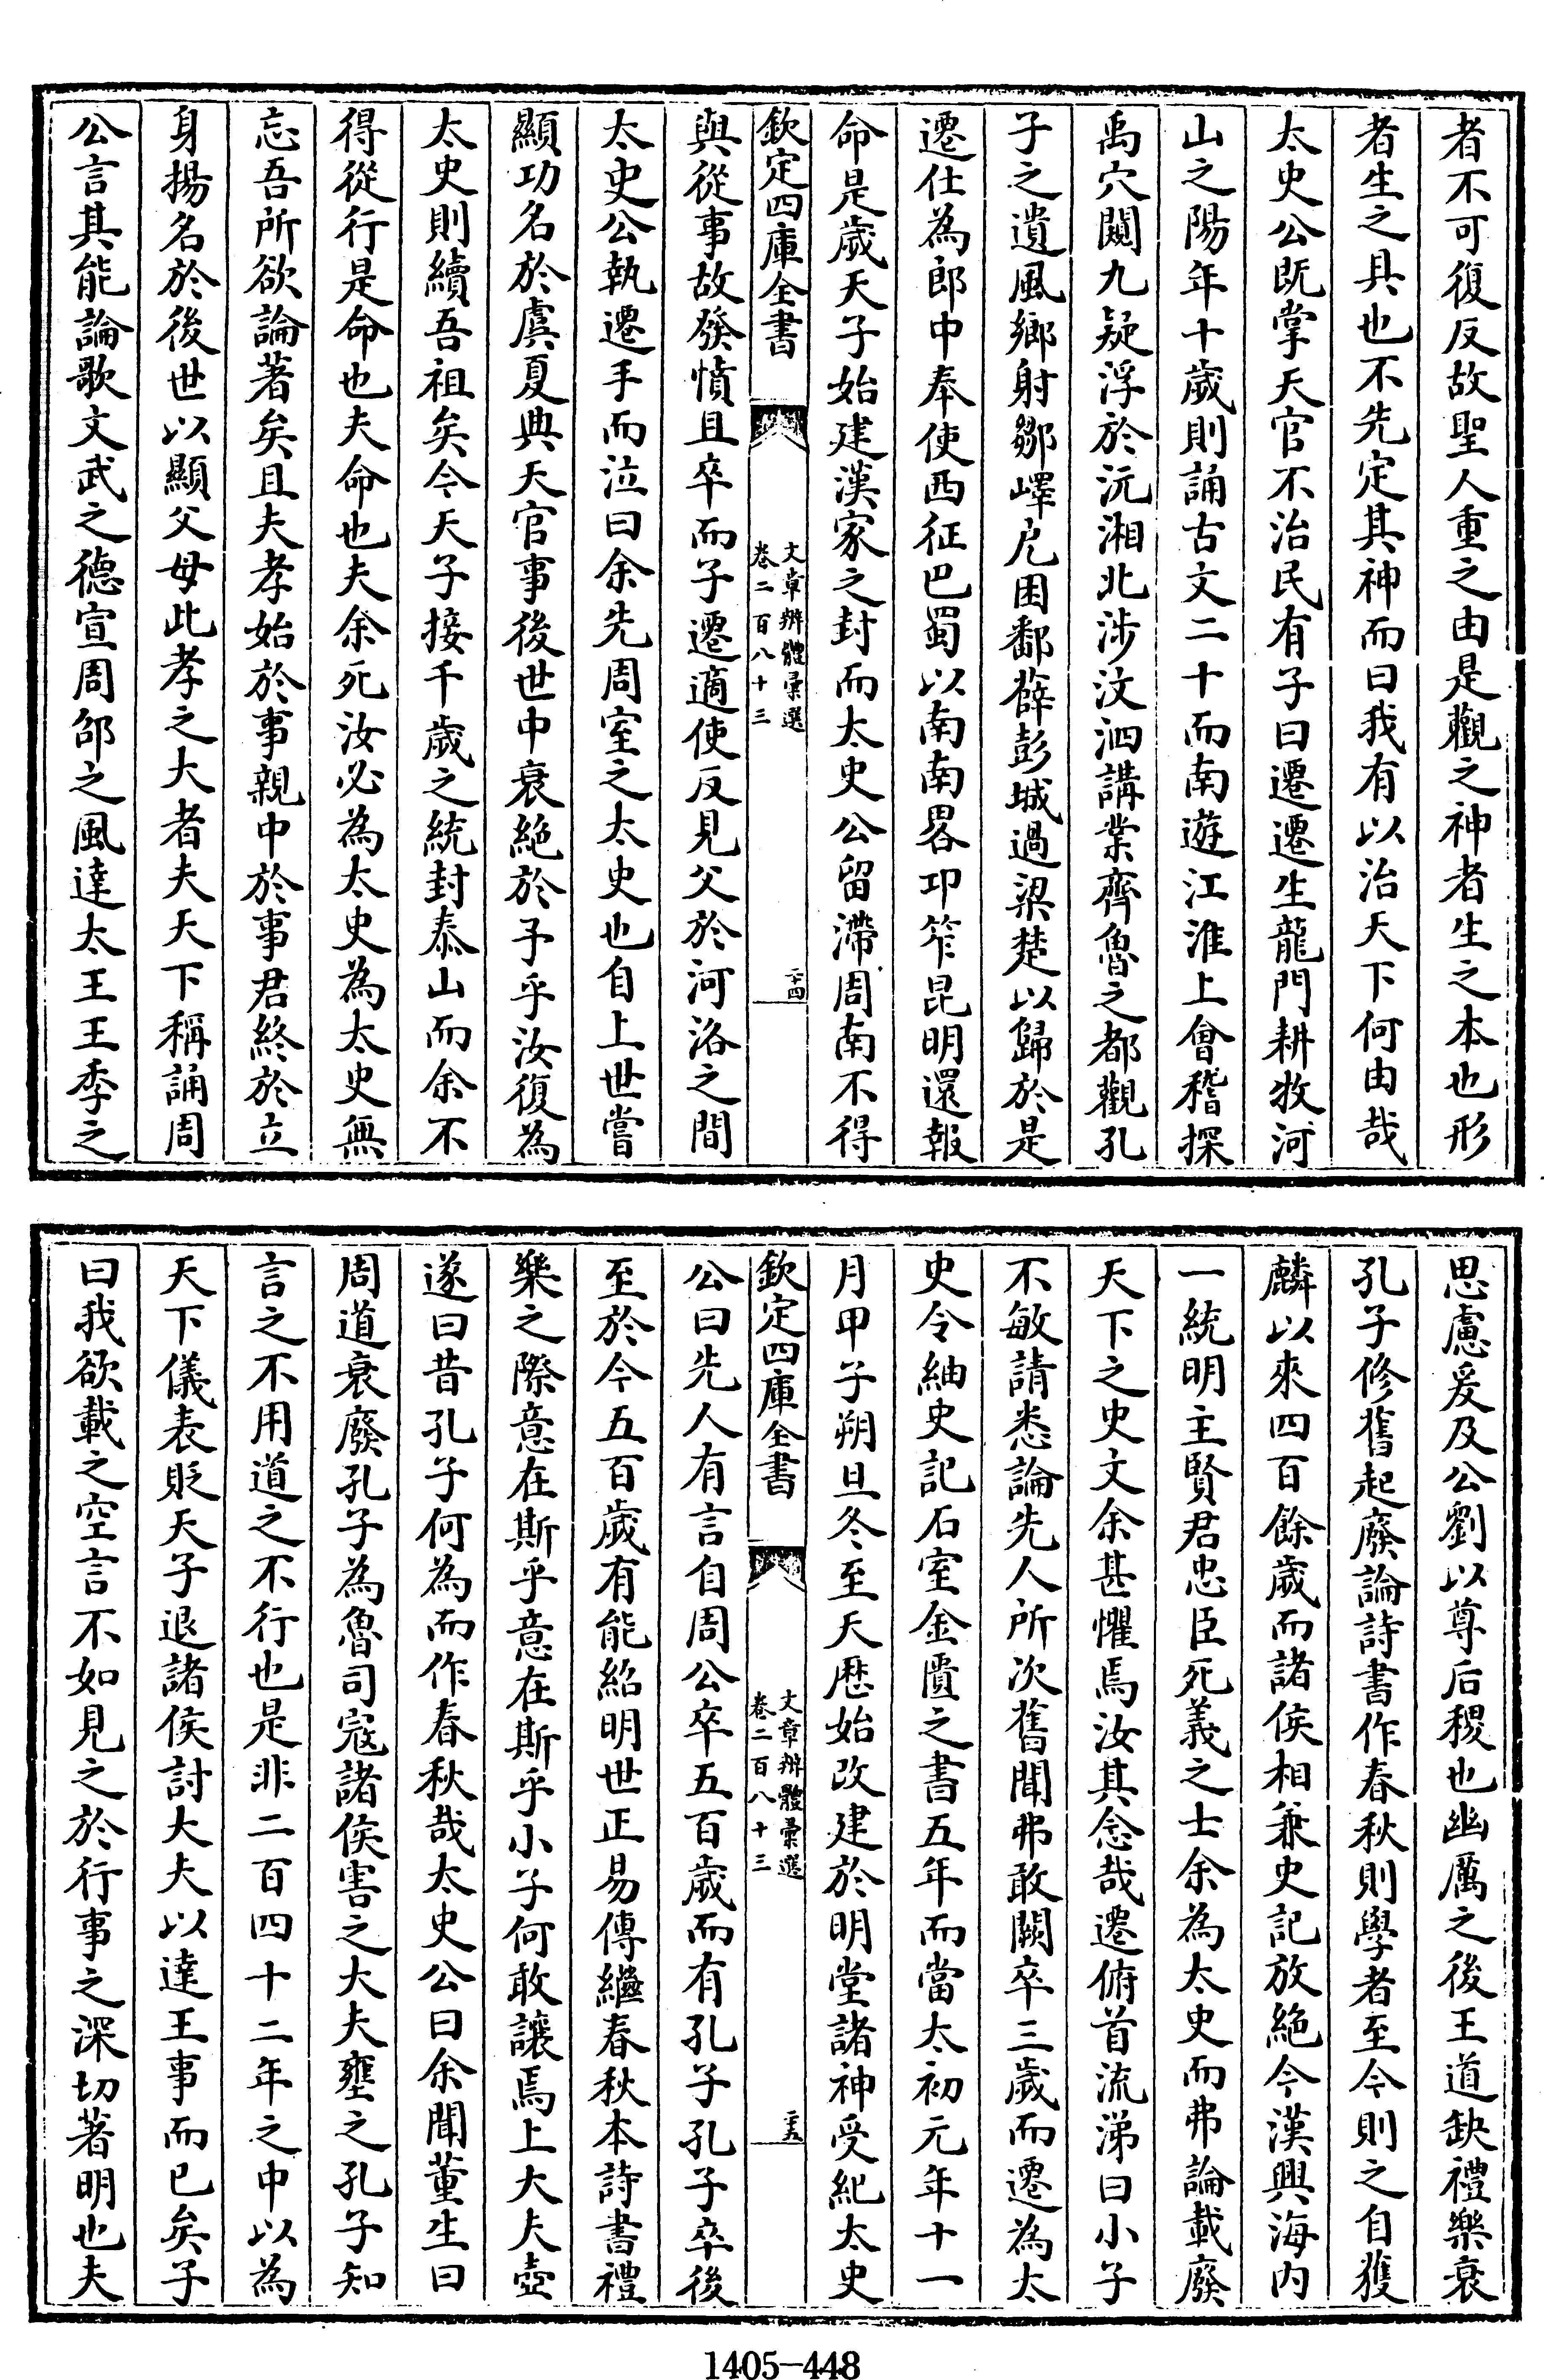 者不可復反故聖人重之由是觀之神者生之本也形
者生之具也不先定其神而曰我有以治天下何由哉
太史公既掌天官不治民有子曰遷遷生龍門耕牧河
山之陽年十歲則誦古文二十而南遊江淮上會稽探
禹穴闚九疑浮於沅湘北涉汶泗講業齊魯之都觀孔
子之遺風鄉射鄒嶧戹困鄱薛彭城過梁楚以歸於是
遷仕為郎中奉使西征巴蜀以南南畧邛笮昆明還報
命是歲天子始建漢家之封而太史公留滯周南不得
欽定四庫全書
文章辨體彙選
卷二百八十三
二十四
與從事故發憤且卒而子遷適使反見父於河洛之間
太史公執遷手而泣曰余先周室之太史也自上世嘗
顯功名於虞夏典天官事後世中衰絕於予乎汝復為
太史則續吾祖矣今天子接千歲之統封泰山而余不
得從行是命也夫命也夫余死汝必為太史為太史無
忘吾所欲論著矣且夫孝始於事親中於事君終於立
身揚名於後世以顯父母此孝之大者夫天下稱誦周
公言其能論歌文武之德宣周邵之風達太王王季之
思慮爰及公劉以尊后稷也幽厲之後王道缺禮樂衰
孔子修舊起廢論詩書作春秋則學者至今則之自獲
麟以來四百餘歲而諸侯相兼史記放絕今漢興海內
一統明主賢君忠臣死義之士余為太史而弗論載廢
天下之史文余甚懼焉汝其念哉遷俯首流涕曰小子
不敏請悉論先人所次舊聞弗敢闕卒三歲而遷為太
史令紬史記石室金匱之書五年而當太初元年十一
月甲子朔旦冬至天歷始改建於明堂諸神受紀太史
欽定四庫全書
文章辨體彙選
卷二百八十三
二十五
公曰先人有言自周公卒五百歲而有孔子孔子卒後
至於今五百歲有能紹明世正易傳繼春秋本詩書禮
樂之際意在斯乎意在斯乎小子何敢讓焉上大夫壺
遂曰昔孔子何為而作春秋哉太史公曰余聞董生曰
周道衰廢孔子為魯司寇諸侯害之大夫壅之孔子知
言之不用道之不行也是非二百四十二年之中以為
天下儀表貶天子退諸侯討大夫以達王事而已矣子
曰我欲載之空言不如見之於行事之深切著明也夫
1405-448